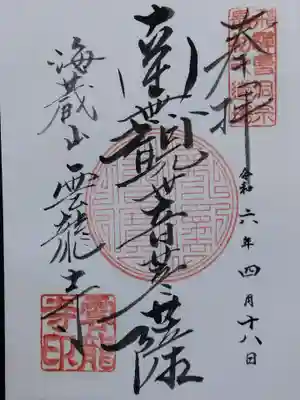 奉拝
令和六年四月十八日
南無観世音菩薩
海蔵山雲龍寺
雲龍
寺印